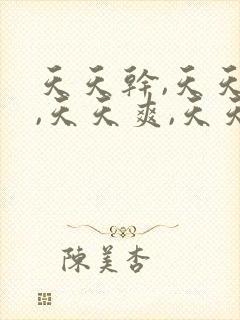 天天幹,天天
,天天爽,天天
陳美杏